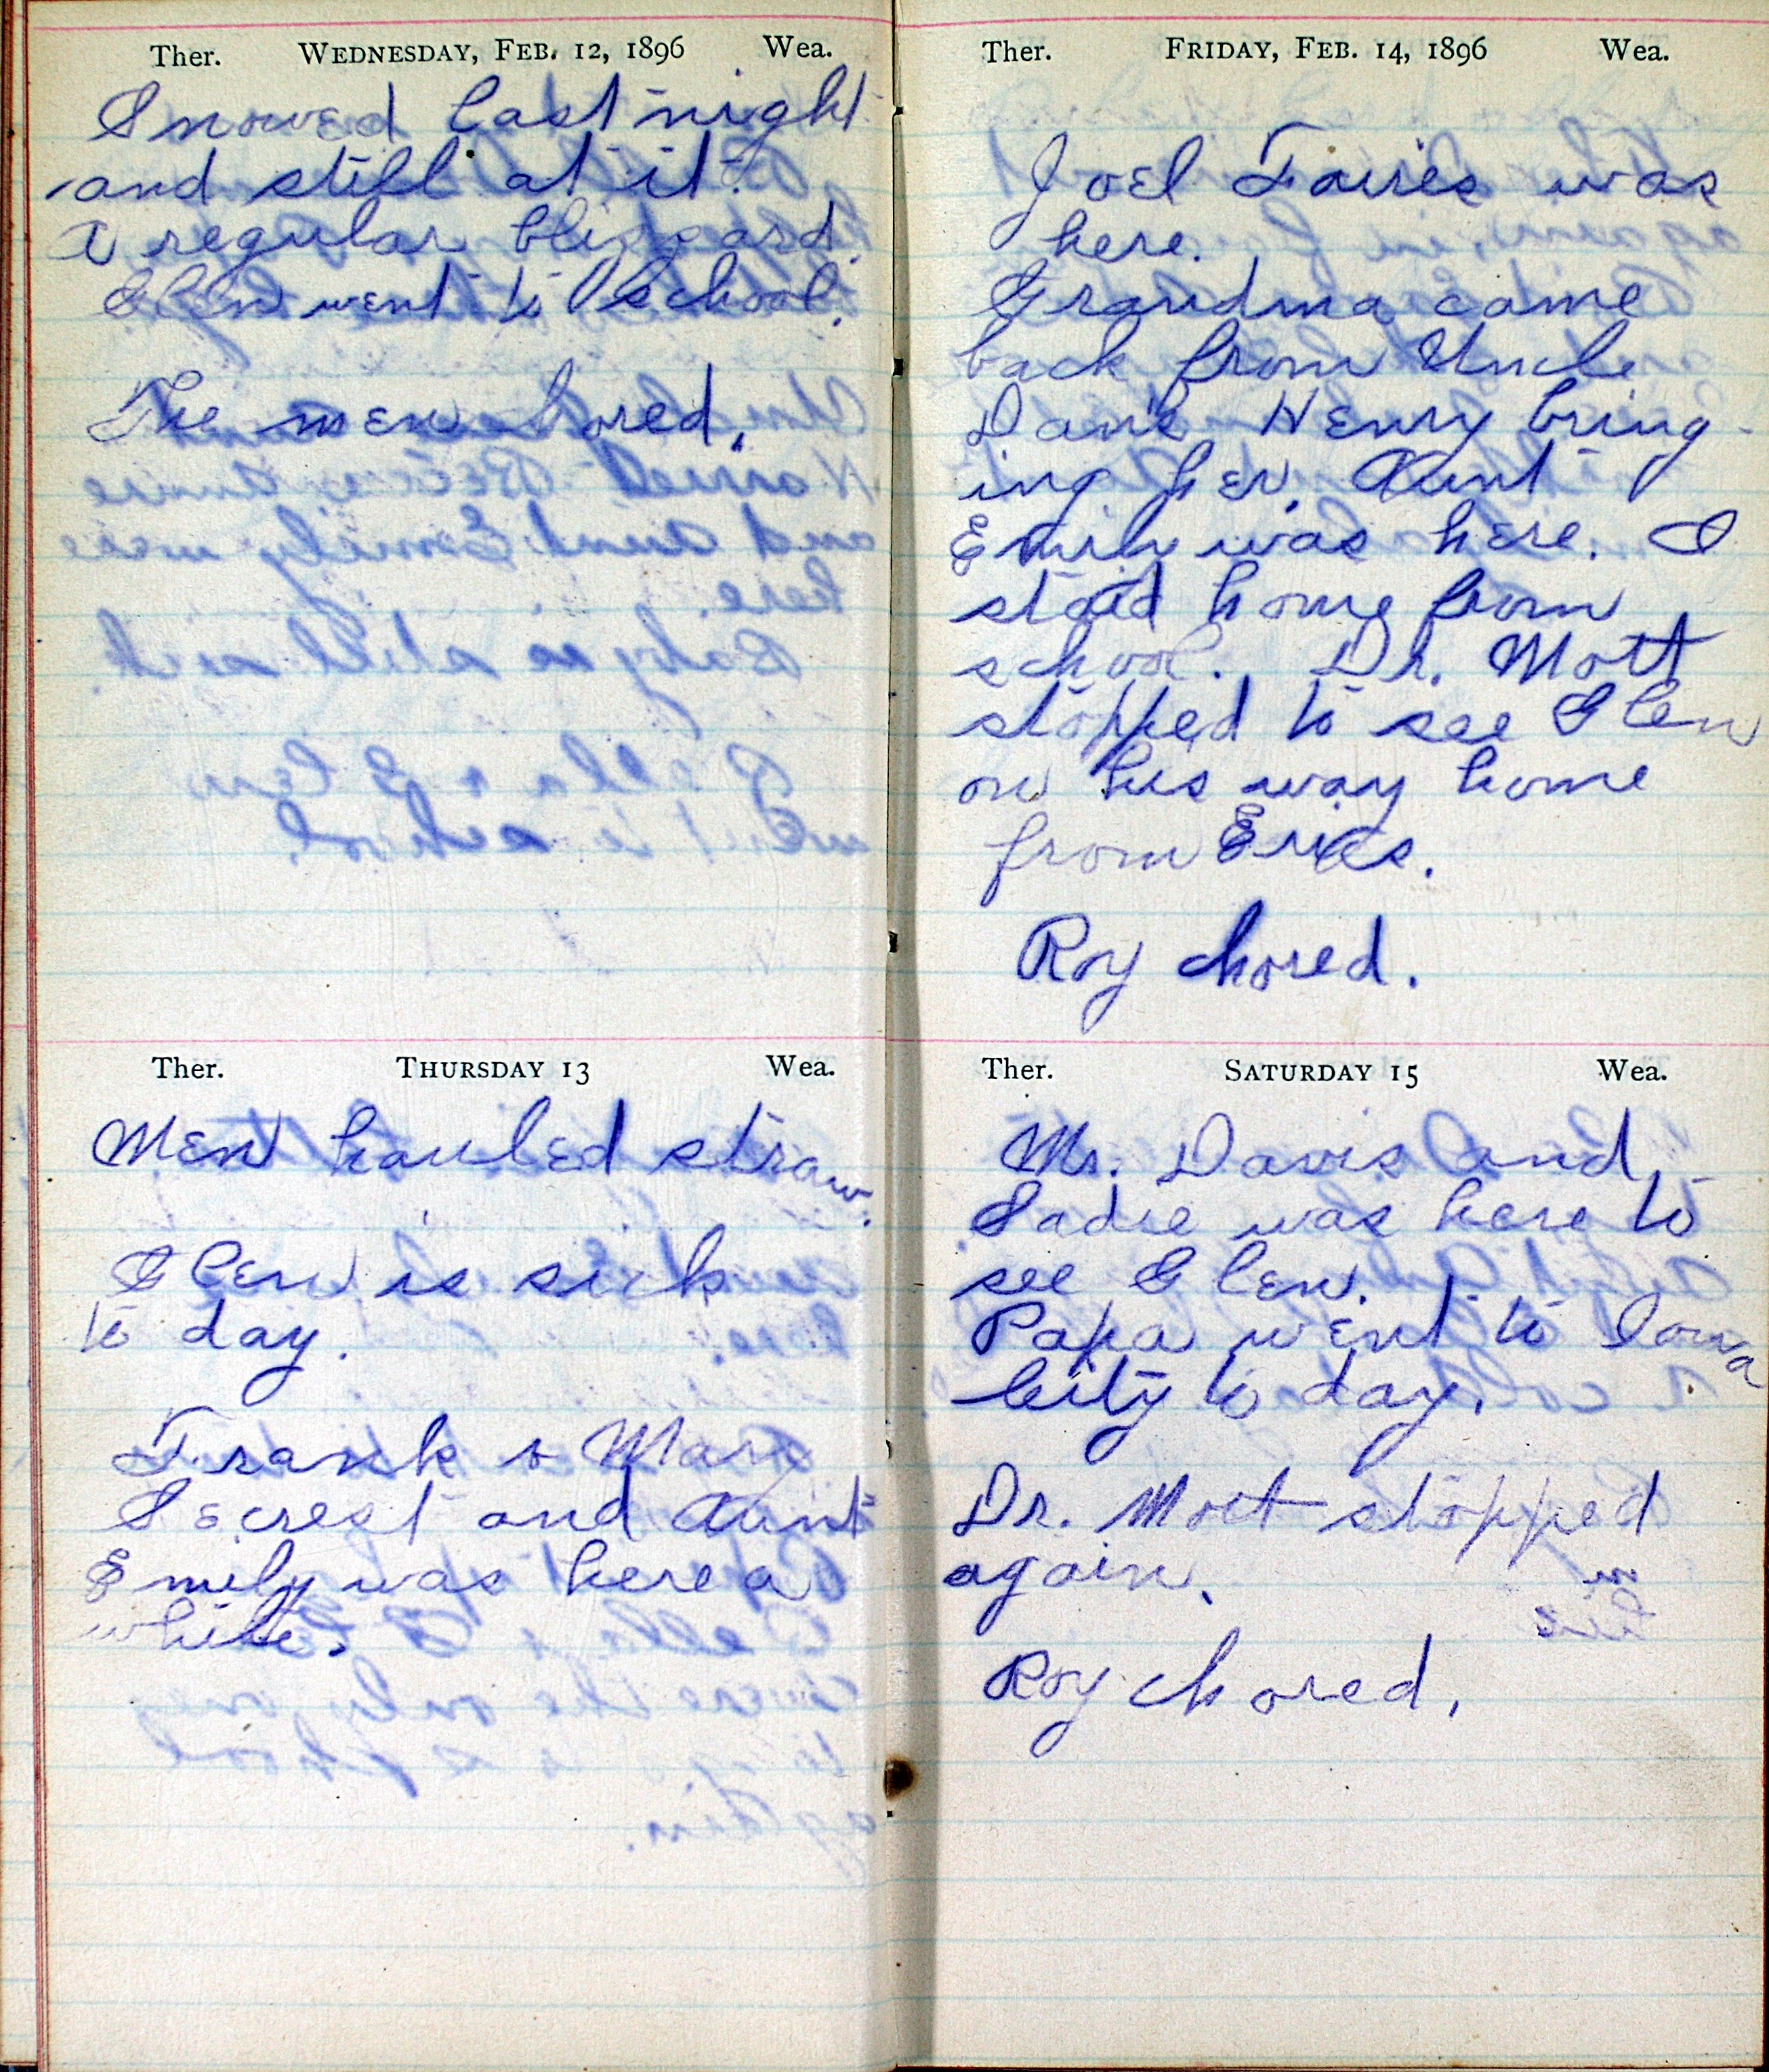 Ther. WEDNESDAY, FEB. 12, 1896 Wea.
Snowed last night
and still at it.
A regular blizzard.
Glen went to school.
The men chored.
Ther. THURSDAY 13 Wea.
Men hauled straw.
Glen is sick
to day.
Frank & Mary
Secrest and Aunt
Emily was here a
while.
Ther. FRIDAY, FEB. 14, 1896 Wea.
Joel Fairės was
here.
Grandma came
back from Uncle
Dave Henry bring-
ing her. Aunt
Emily was here. I
staid home from
school. Dr. Mott
stopped to see Glen
on his way home
from Erics.
Roy chored.
Ther. SATURDAY 15 Wea.
Mr. Davis and
Sadie was here to
see Glen.
Papa went to Iowa
City to day.
Dr. Mott stopped
again.
Roy chored.